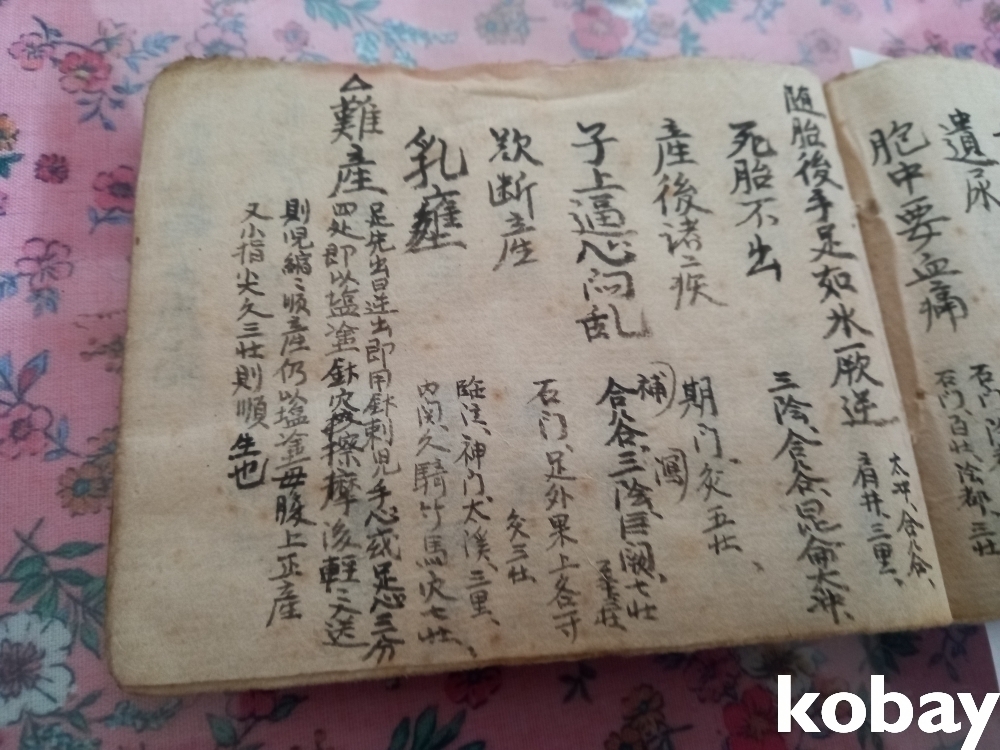 遺尿
石門
胞中要血痛
石門、百壮、陰都、三壮
随胎後手足如氷厥逆
太冲、合谷、
肩井、三里、
死胎不出
三陰、合谷、昆侖太冲、
産後諸疾
期门、灸五壮、
子上逼心闷乱
補 瀉
合谷、三陰、巨阙、七壮
欲断产
石门、足外果上各一寸
灸三壮
乳癰
臨泣、神门、太溪、三里、
内関、久騎竹馬穴七壮、
△難産
足先出曰逆出即用針刺児手心或足心三分
四处即以塩塗針穴擦摩後軽々送
則児縮々順産仍以塩塗母腹上正産
又小指尖久三壮則順生也
kobay